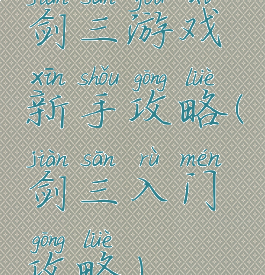 jiàn sān yóu xì
剑三游戏
xīn shǒu gōng lüè
新手攻略(
jiàn sān rù mén
剑三入门
gōng lüè
攻略)